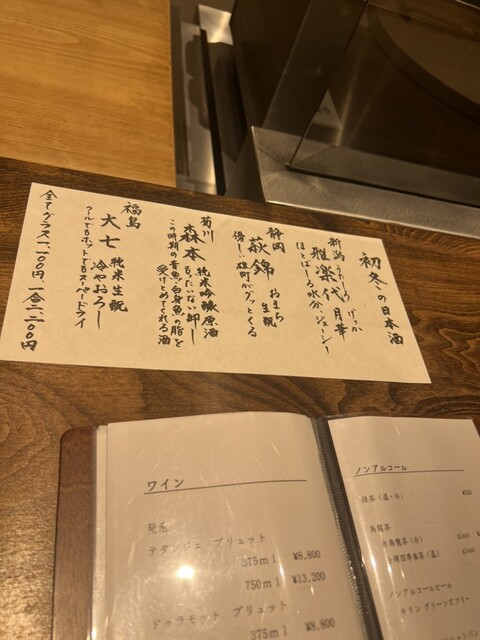 初冬の日本酒
新潟 うたしろ げっか
雅楽代 月華
ほとばしる水分、ジューシー
静岡 おまち
萩錦 生酛
優しい雄町がグッとくる
菊川 純米吟醸原酒
森本 もったいない卸し
この時期の青魚・白身魚の脂を
受けとめてくれる酒
福島 純米生酛
大七 冷やおろし
クールでもホットでもスーパードライ
全てグラス一、一〇〇円、一合二、二〇〇円
ワイン
発泡
テタンジェ ブリュット
375ml ¥8,800
750ml ¥13,200
ドゥラモット ブリュット
375ml ¥8,800
ノンアルコール
緑茶(温・冷)
烏龍茶
凍頂烏龍茶(冷) glass
四季春茶(温) glass
ノンアルコールビール
キリン グリーンズフリー